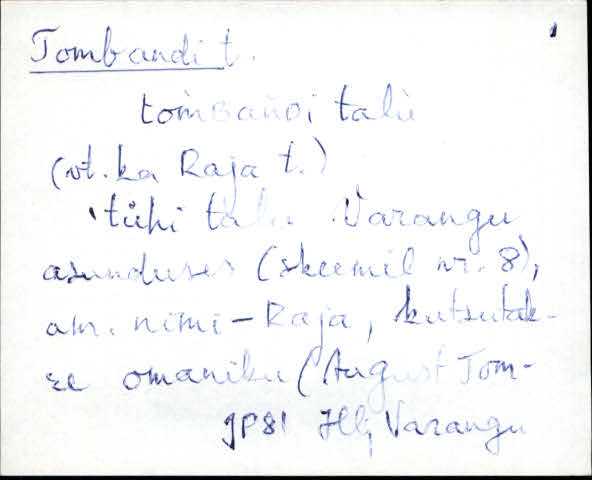 1
Tombandi t.
tomBanDi talu
(vt. ka Raja t.)
tühi talu Varangu
asunduses (skeemil nr. 8),
am. nimi - Raja, kutsutak-
se omaniku (August Tom-
JP81 Hlj Varangu